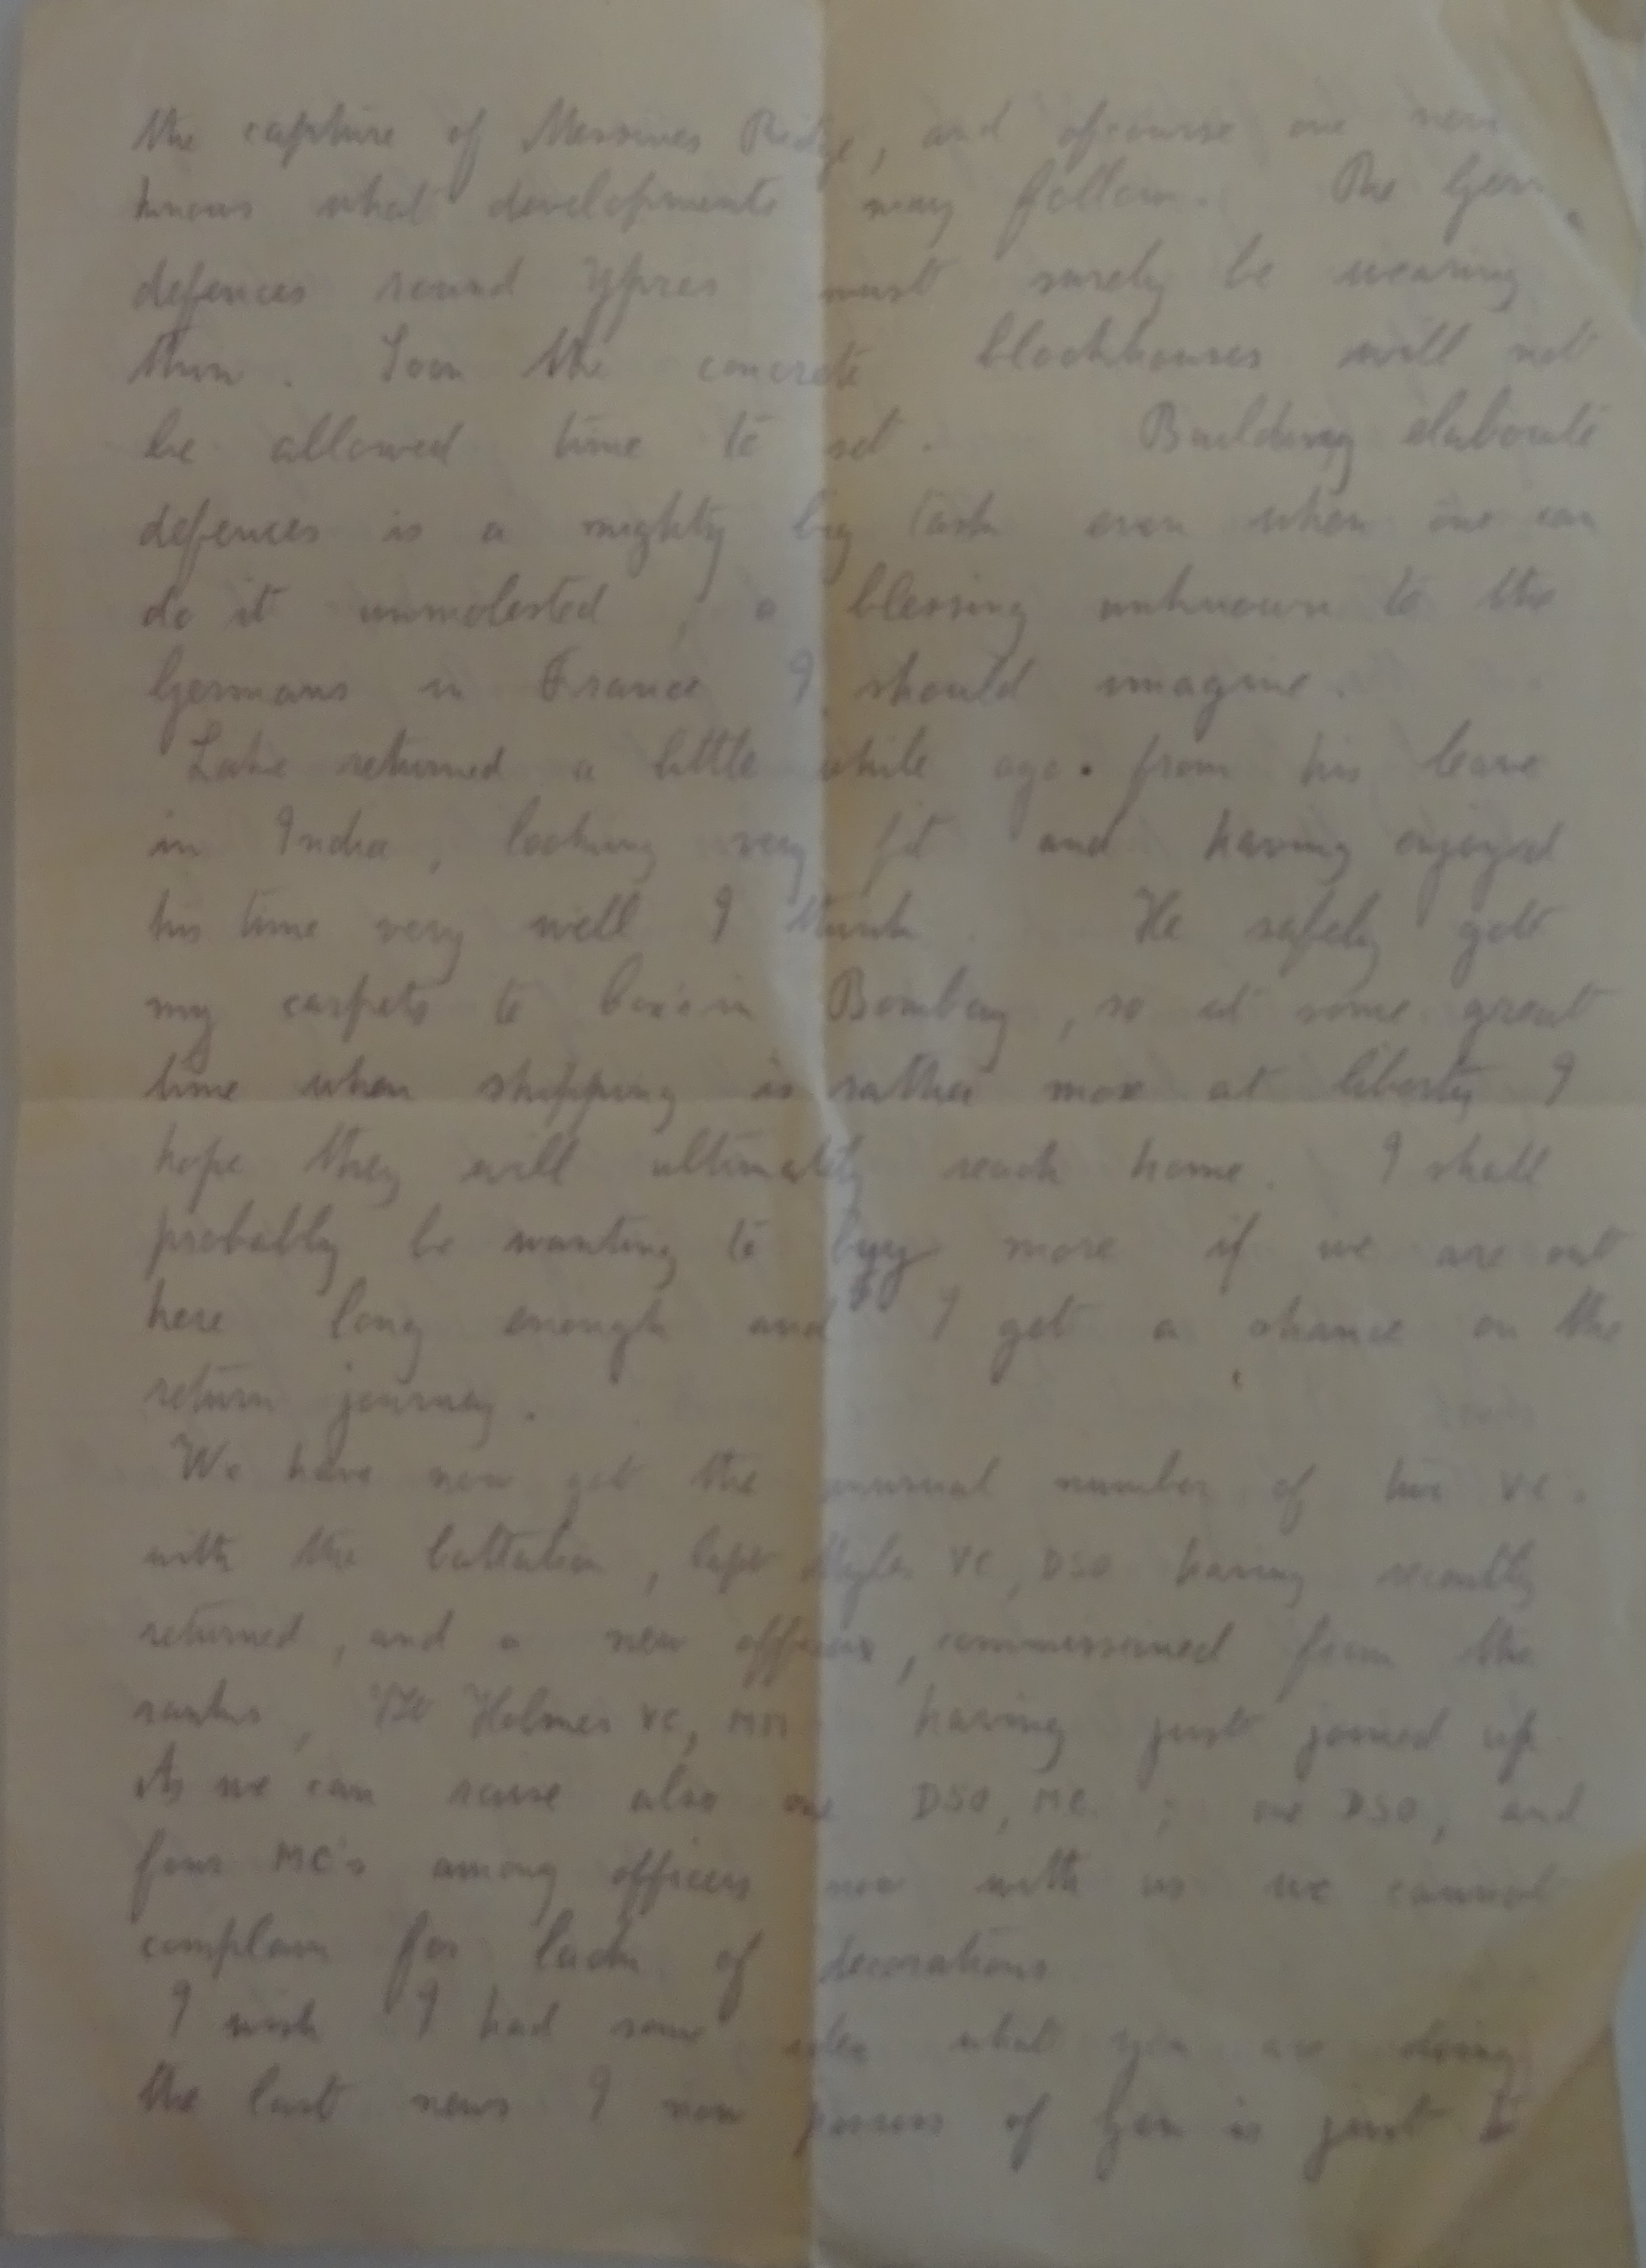 the capture of Messines Ridge, and ofcourse one never
knows what developments may follow. The Germ
defences round Ypres must surely be wearing
thin. Soon the concrete blockhouses will not
be allowed time to set. Building elaborate
defences is a mighty big task even when one can
do it unmolested, a blessing unknown to the
Germans in France I should imagine.
Lake returned a little while ago. from his leave
in India, looking very fit and having enjoyed
his time very well I think. He safely got
my carpets to Bombay, so at some great
time when shipping is rather more at liberty I
hope they will ultimately reach home. I shall
probably be wanting to buy more if we are out
here long enough and I get a chance on the
return journey.
We have now got the unusual number of two VC.
with the battalion, Capt Myles VC, DSO having recently
returned, and a new officer, commissioned from the
ranks, Holmes VC, MM having just joined up
As we can raise also one DSO, MC. ; one DSO, and
four MC's among officers now with us we cannot
complain for lack of decorations
I wish I had some idea what you are doing
the last news I now possess of you is just to